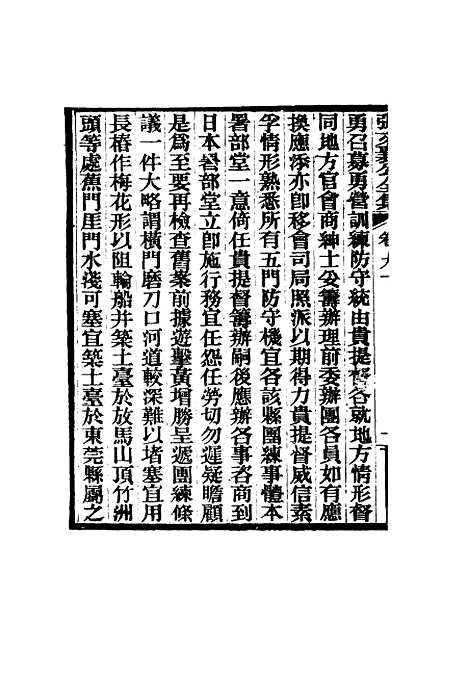 張文襄公全集 卷九十一
勇召募勇營訓練防守統由貴提督各就地方情形督
同地方官會商紳士妥籌辦理前委辦團各員如有應
換應添亦卽移會司局照派以期得力貴提督威信素
孚情形熟悉所有五門防守機宜各該縣團練事體本
署部堂一意倚任貴提督籌辦嗣後應辦各事咨商到
日本署部堂立卽施行務宜任怨任勞切勿遲疑瞻顧
是爲至要再檢查舊案前據遊擊黃增勝呈遞團練條
議一件大略謂橫門磨刀口河道較深難以堵塞宜用
長樁作梅花形以阻輪船幷築土臺於放馬山頂竹洲
頭等處蕉門厓門水淺可塞宜築土臺於東莞縣屬之